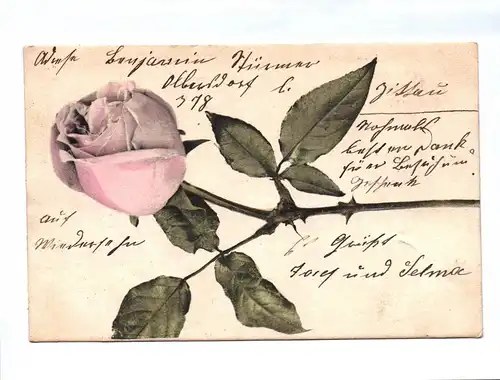 Adresse Benjamin Stürmer
Olbersdorf b.
378 Zittau
Nochmals
besten Dank
für
Geschenk
auf
Wiedersehn
Es Grüßt
Josef und Selma